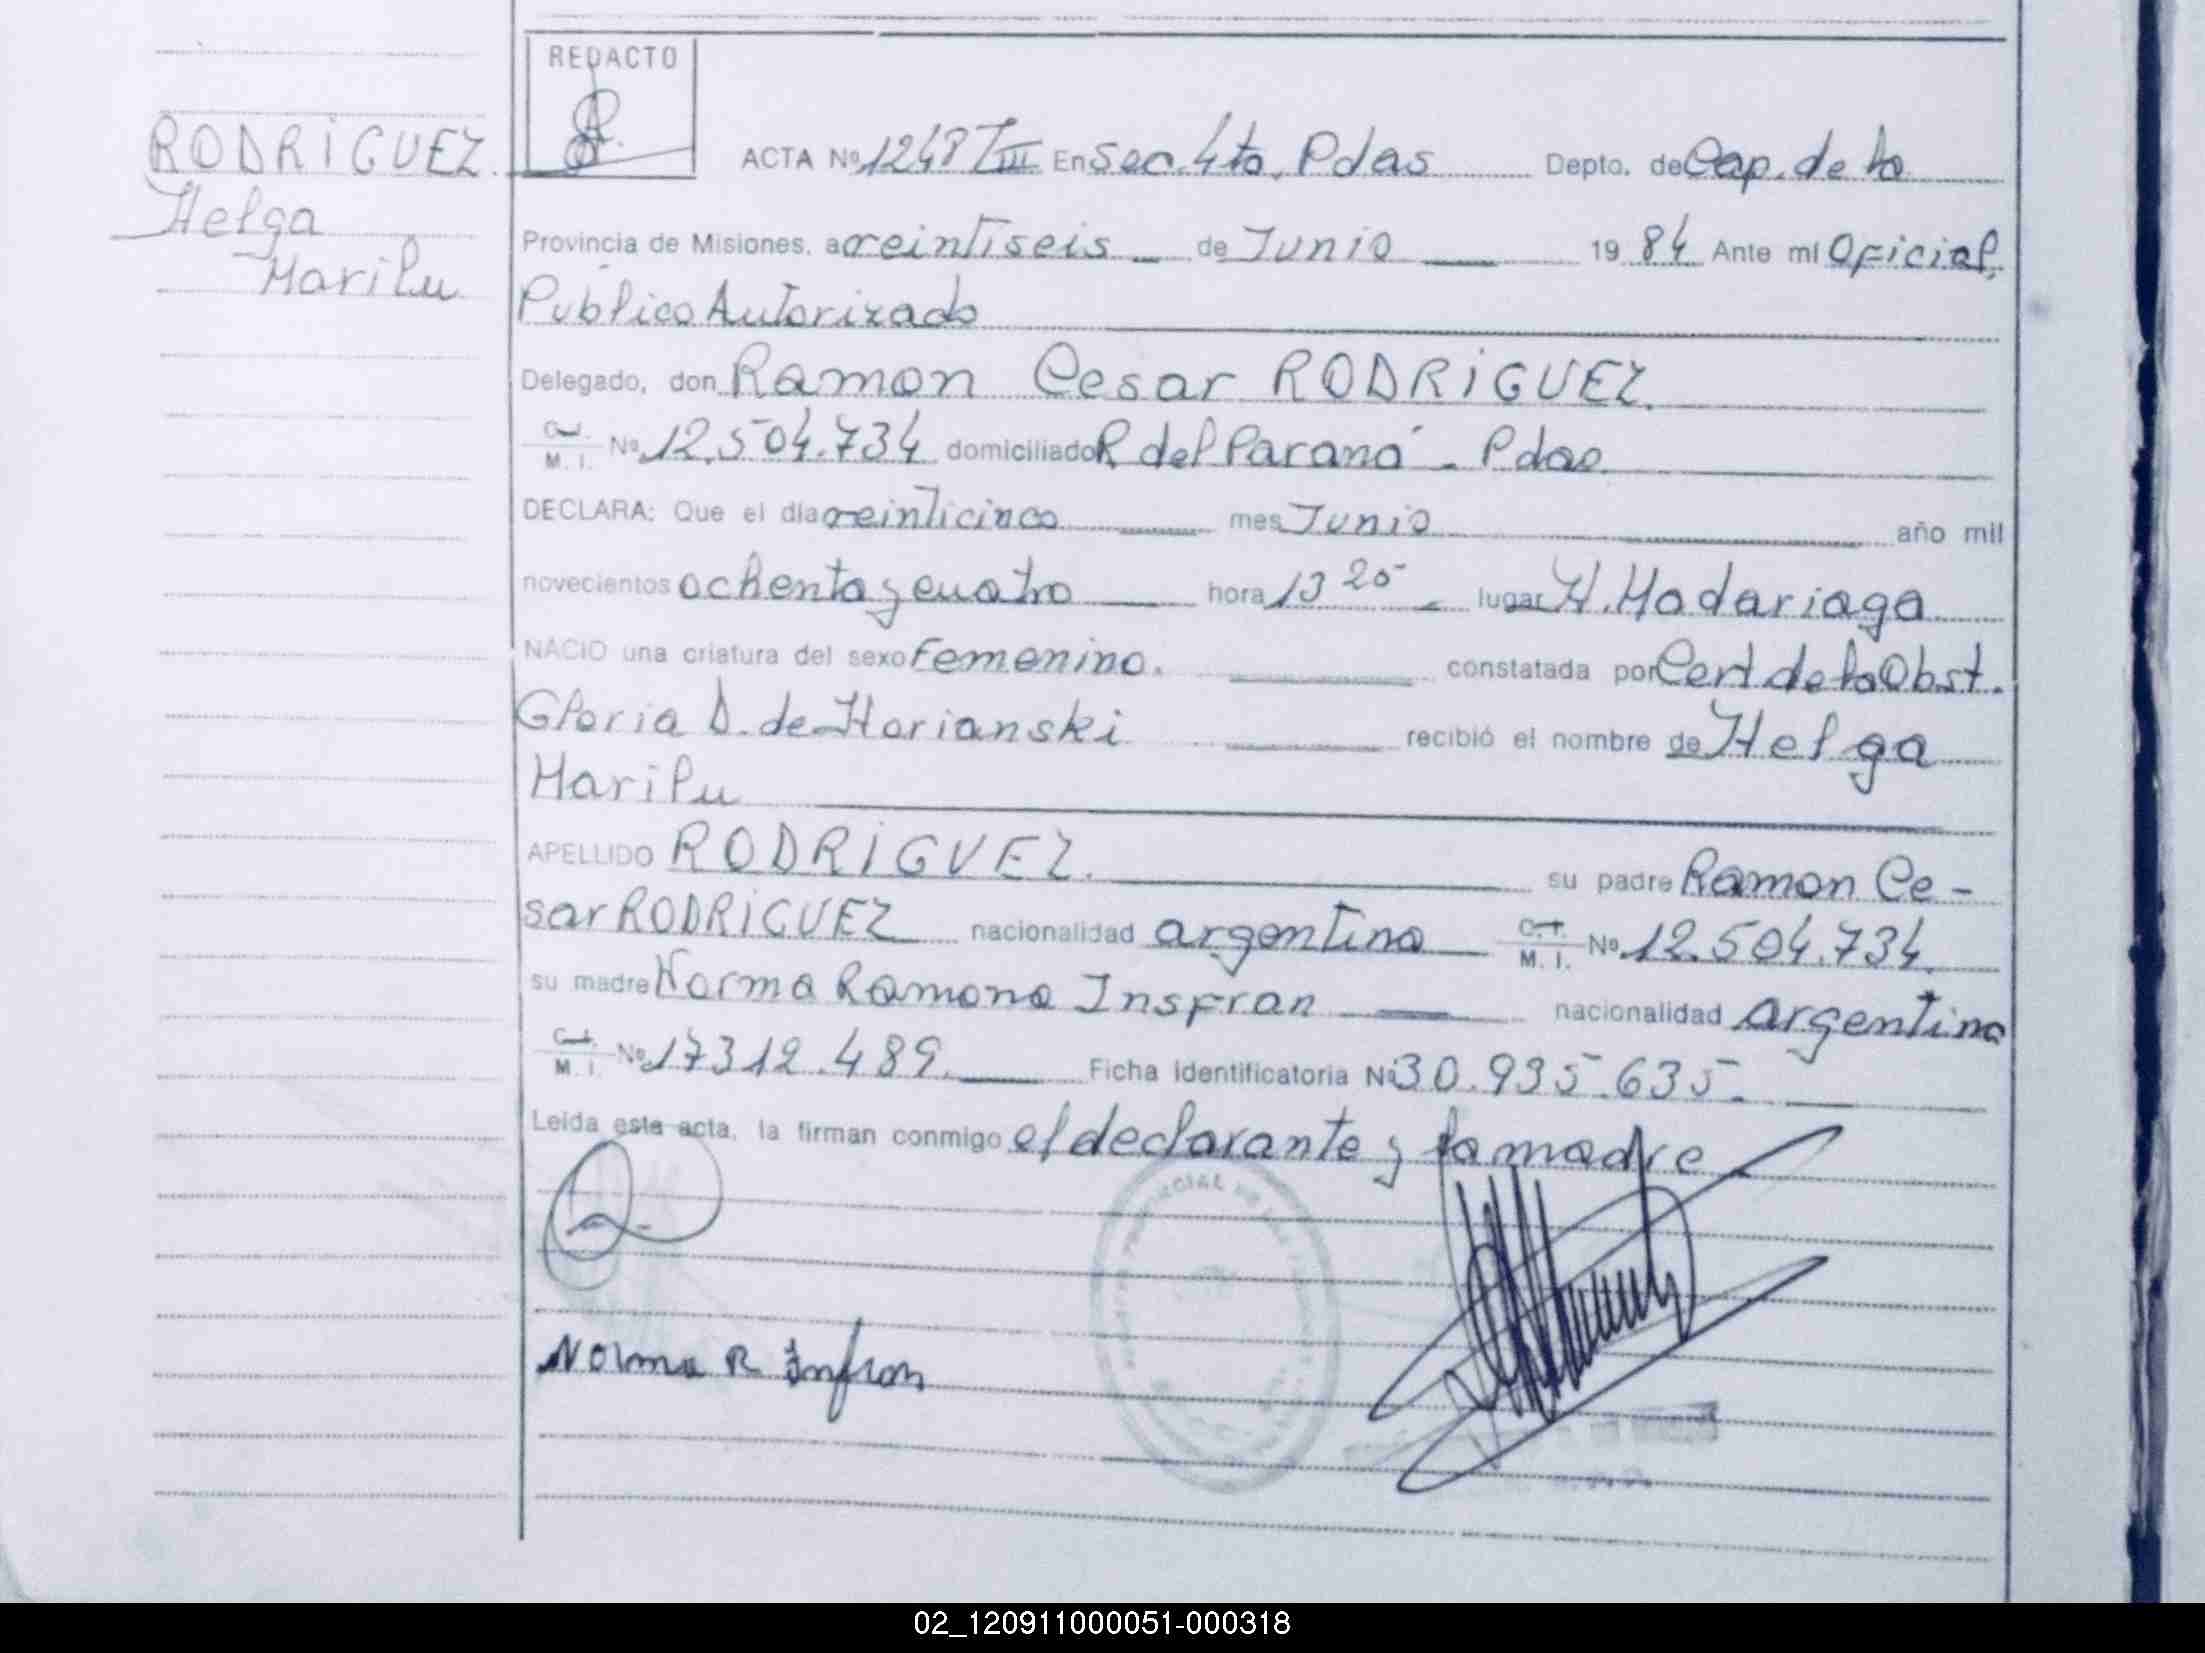 REDACTO
RODRIGUEZ.
Helga
Marilu
ACTA Nº 1248 T III En Sec. 4ta. Pdas Depto. de Cap. de la
Provincia de Misiones, a veintiseis de Junio 1984 Ante mí Oficial,
Público Autorizado
Delegado, don Ramon Cesar RODRIGUEZ.
M. I. Nº 12.504.734 domiciliado R del Paraná - Pdas
DECLARA: Que el día veinticinco mes Junio año mil
novecientos ochenta y cuatro hora 13 20 lugar H. Madariaga
NACIO una criatura del sexo femenino. constatada por Cert de la Obst.
Gloria D. de Horianski recibió el nombre de Helga
Marilu
APELLIDO RODRIGUEZ. su padre Ramon Ce-
sar RODRIGUEZ nacionalidad argentina M. I. Nº 12.504.734
su madre Norma Ramona Insfran nacionalidad argentina
M. I. Nº 17312.489. Ficha Identificatoria Nº 30.935.635.
Leida esta acta, la firman conmigo el declarante y la madre
Norma R Insfran
02_120911000051-000318